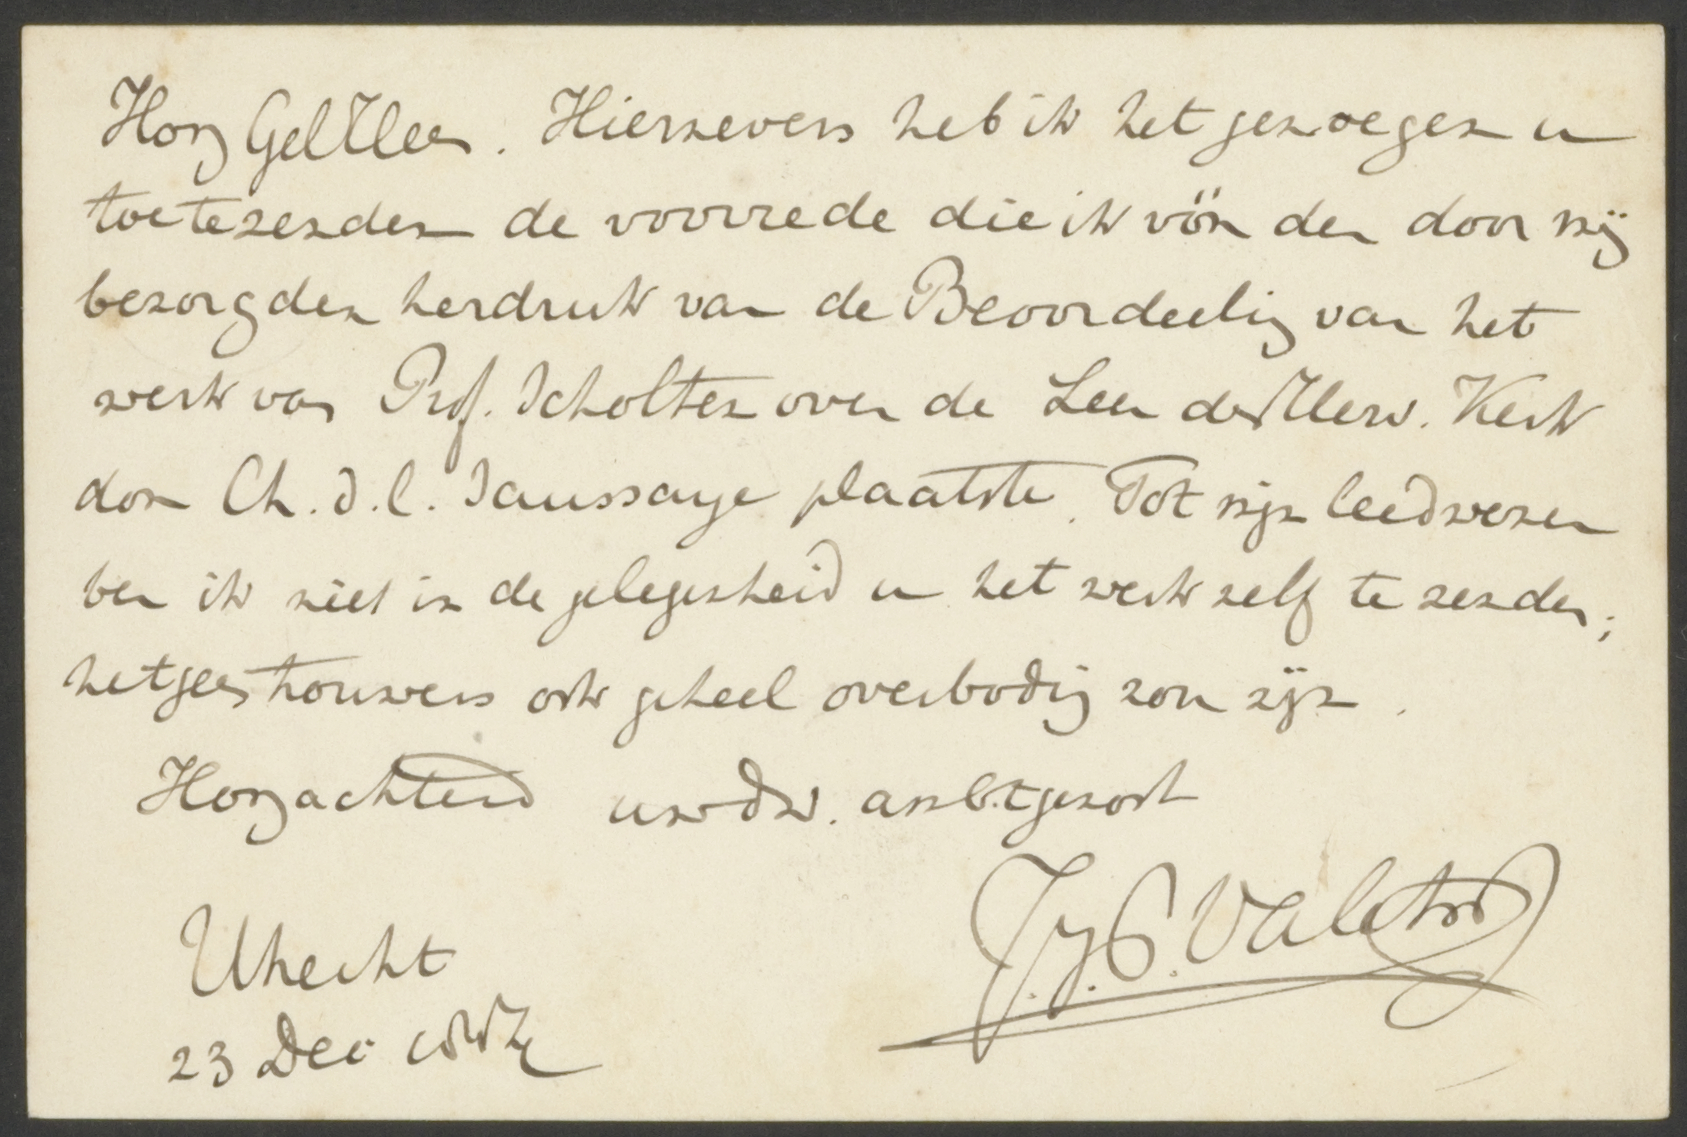 Hoog Gel Heer. Hiernevens heb ik het genoegen u
toetezenden de voorrede die ik vóór den door mij
bezorgden herdruk van de Beoordeeling van het
werk van Prof. Scholten over de Leer der Herv. Kerk
door Ch. d. l. Saussaye plaatste. Tot mijn leedwezen
ben ik niet in de gelegenheid u het werk zelf te zenden;
hetgeen trouwens ook geheel overbodig zou zijn.
Hoogachtend uwdw. ambtgenoot
J.J.P. Valeton
Utrecht
23 Dec